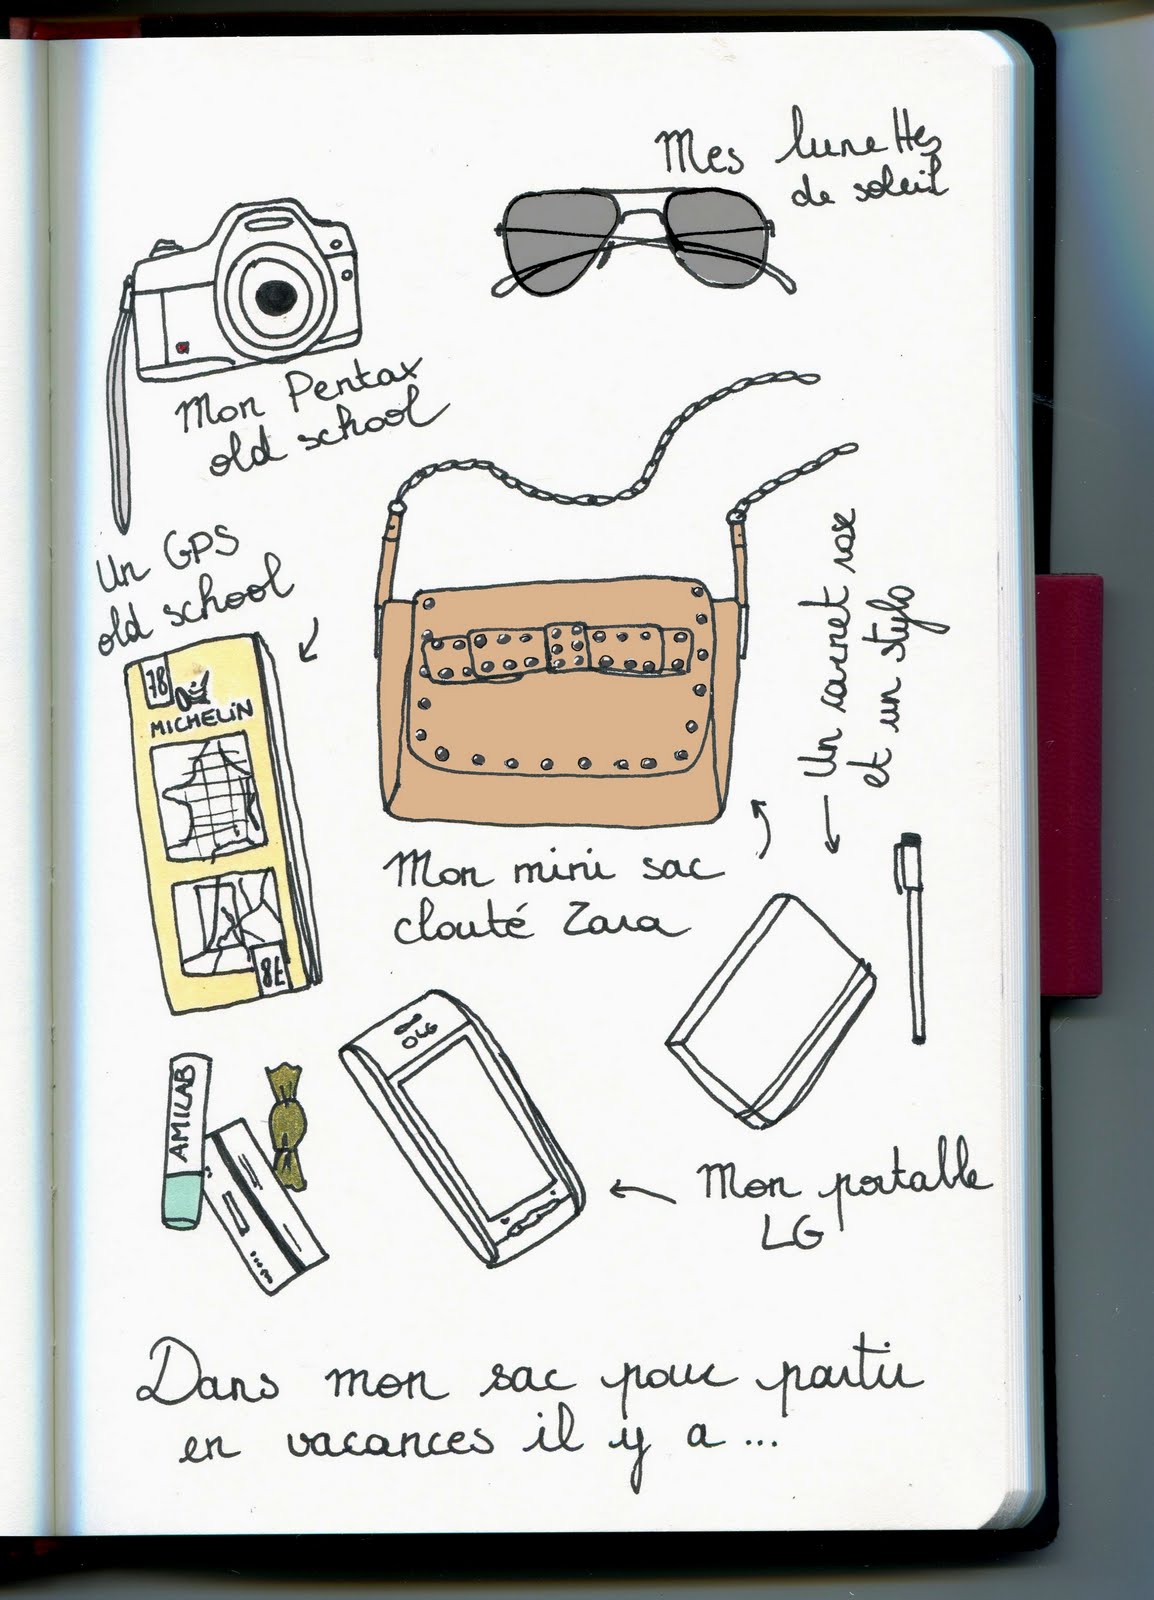 Mes lunettes
de soleil
Mon Pentax
old school
Un GPS
old school
78
MICHELIN
8E
Un carnet rose
et un stylo
Mon mini sac
clouté Zara
LG
AMILAB
Mon portable
LG
Dans mon sac pour partir
en vacances il y a ...